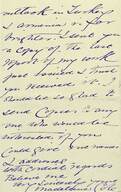 outlook in Turkey
& Armenia is far
brighter. I sent you
a copy of the last
report of my work
just issued I trust
you received it. I
should be so glad to
send copies to any
one who would be
interested if you
could give me names
& addresses
with cordial regards
Believe me
very sincerely yours